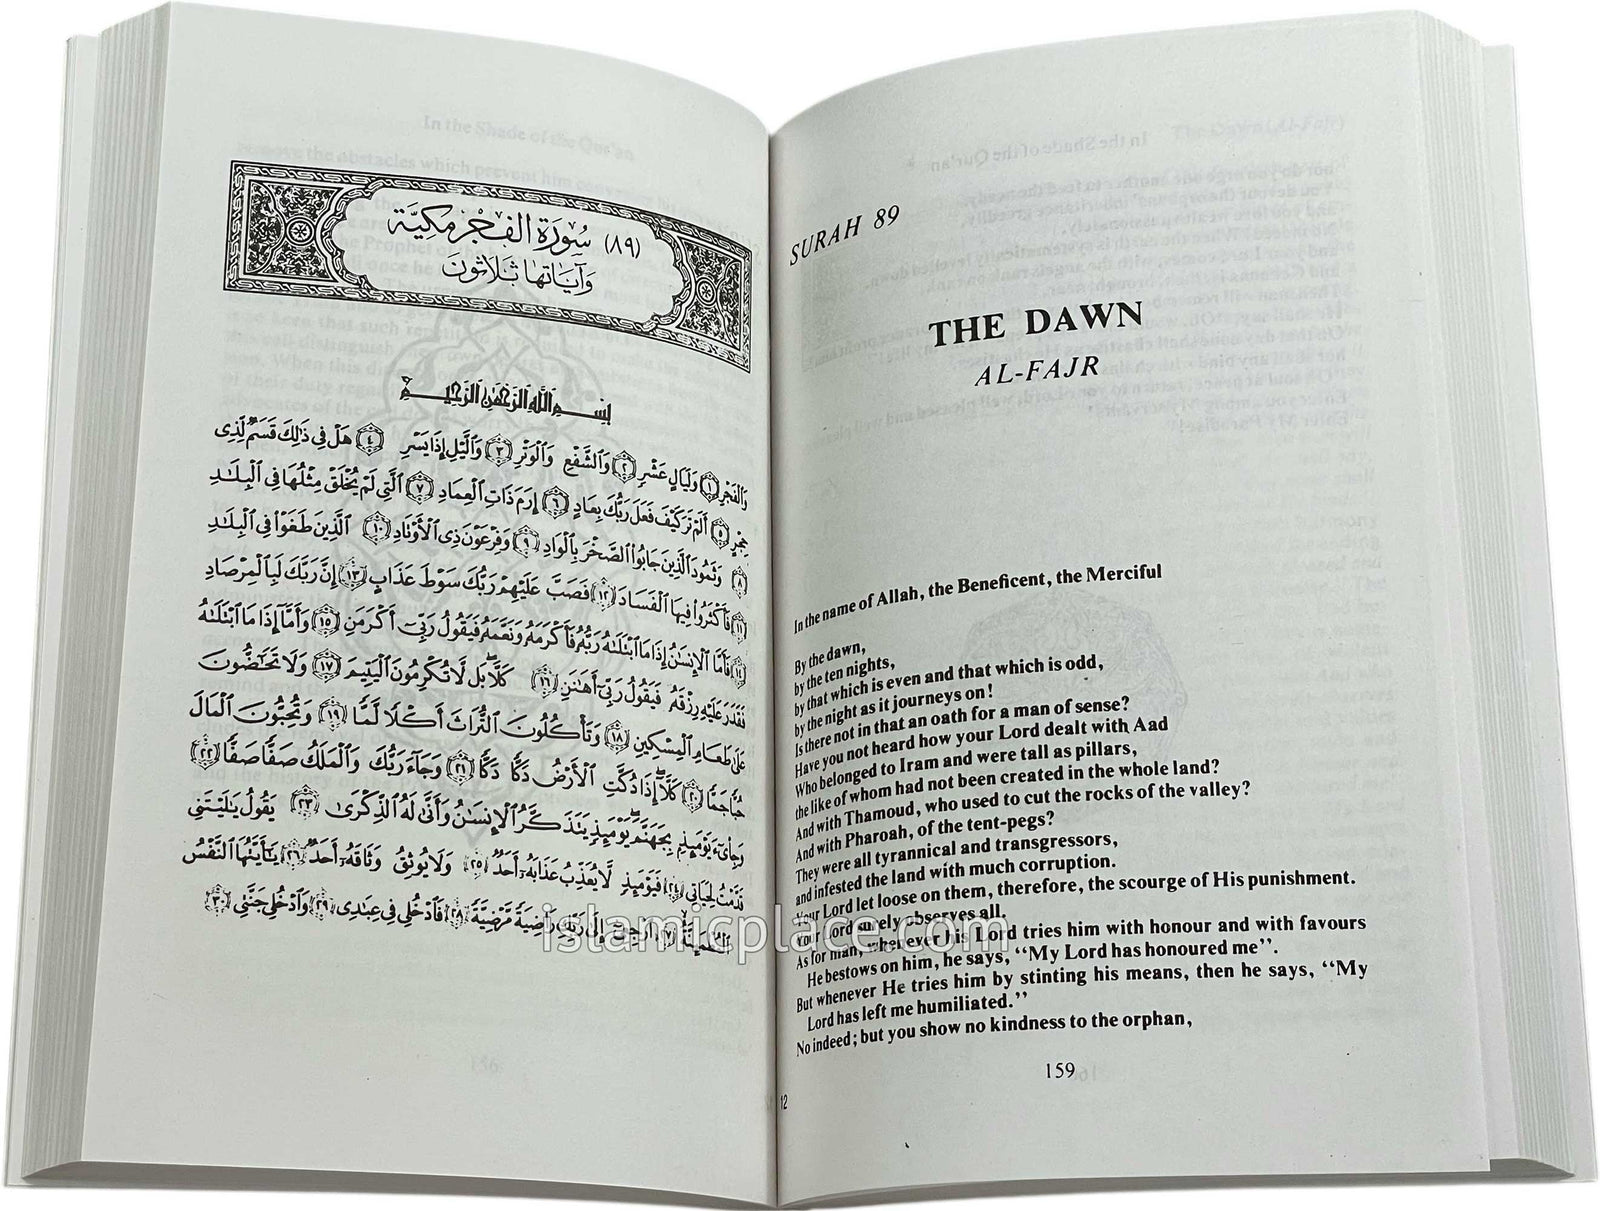 (٨٩) سُورَةِ الفَجْرِ مَكِيَّة
وَآيَاتهَا ثَلاثُونَ
بِسْمِ اللَّهِ الرَّحْمَٰنِ الرَّحِيمِ
وَالْفَجْرِ ١ وَلَيَالٍ عَشْرٍ ٢ وَالشَّفْعِ وَالْوَتْرِ ٣ وَالَّيْلِ إِذَا يَسْرِ ٤ هَلْ فِي ذَٰلِكَ قَسَمٌ لِّذِى
حِجْرٍ ٥ أَلَمْ تَرَ كَيْفَ فَعَلَ رَبُّكَ بِعَادٍ ٦ إِرَمَ ذَاتِ الْعِمَادِ ٧ الَّتِى لَمْ يُخْلَقْ مِثْلُهَا فِى الْبِلَٰدِ
٨ وَثَمُودَ الَّذِينَ جَابُوا الصَّخْرَ بِالْوَادِ ٩ وَفِرْعَوْنَ ذِى الْأَوْتَادِ ١٠ الَّذِينَ طَغَوْا فِى الْبِلَٰدِ
١١ فَأَكْثَرُوا فِيهَا الْفَسَادَ ١٢ فَصَبَّ عَلَيْهِمْ رَبُّكَ سَوْطَ عَذَابٍ ١٣ إِنَّ رَبَّكَ لَبِالْمِرْصَادِ
١٤ فَأَمَّا الْإِنسَٰنُ إِذَا مَا ابْتَلَىٰهُ رَبُّهُ فَأَكْرَمَهُ وَنَعَّمَهُ فَيَقُولُ رَبِّى أَكْرَمَنِ ١٥ وَأَمَّا إِذَا مَا ابْتَلَىٰهُ
فَقَدَرَ عَلَيْهِ رِزْقَهُ فَيَقُولُ رَبِّى أَهَٰنَنِ ١٦ كَلَّا بَل لَّا تُكْرِمُونَ الْيَتِيمَ ١٧ وَلَا تَحَٰضُّونَ
عَلَىٰ طَعَامِ الْمِسْكِينِ ١٨ وَتَأْكُلُونَ التُّرَاثَ أَكْلًا لَّمًّا ١٩ وَتُحِبُّونَ الْمَالَ
حُبًّا جَمًّا ٢٠ كَلَّا إِذَا دُكَّتِ الْأَرْضُ دَكًّا دَكًّا ٢١ وَجَاءَ رَبُّكَ وَالْمَلَكُ صَفًّا صَفًّا ٢٢
وَجِاىءَ يَوْمَئِذٍ بِجَهَنَّمَ يَوْمَئِذٍ يَتَذَكَّرُ الْإِنسَٰنُ وَأَنَّىٰ لَهُ الذِّكْرَىٰ ٢٣ يَقُولُ يَٰلَيْتَنِى
قَدَّمْتُ لِحَيَاتِى ٢٤ فَيَوْمَئِذٍ لَّا يُعَذِّبُ عَذَابَهُ أَحَدٌ ٢٥ وَلَا يُوثِقُ وَثَاقَهُ أَحَدٌ ٢٦ يَٰأَيَّتُهَا النَّفْسُ
الْمُطْمَئِنَّةُ ٢٧ ارْجِعِى إِلَىٰ رَبِّكِ رَاضِيَةً مَّرْضِيَّةً ٢٨ فَادْخُلِى فِى عِبَٰدِى ٢٩ وَادْخُلِى جَنَّتِى ٣٠
SURAH 89
THE DAWN
AL-FAJR
In the name of Allah, the Beneficent, the Merciful
By the dawn,
by the ten nights,
by that which is even and that which is odd,
by the night as it journeys on!
Is there not in that an oath for a man of sense?
Have you not heard how your Lord dealt with Aad
Who belonged to Iram and were tall as pillars,
the like of whom had not been created in the whole land?
And with Thamoud, who used to cut the rocks of the valley?
And with Pharoah, of the tent-pegs?
They were all tyrannical and transgressors,
and infested the land with much corruption.
Your Lord let loose on them, therefore, the scourge of His punishment.
Your Lord surely observes all.
As for man, whenever his Lord tries him with honour and with favours
He bestows on him, he says, “My Lord has honoured me”.
But whenever He tries him by stinting his means, then he says, “My
Lord has left me humiliated.”
No indeed; but you show no kindness to the orphan,
159
12
islamicplace.com